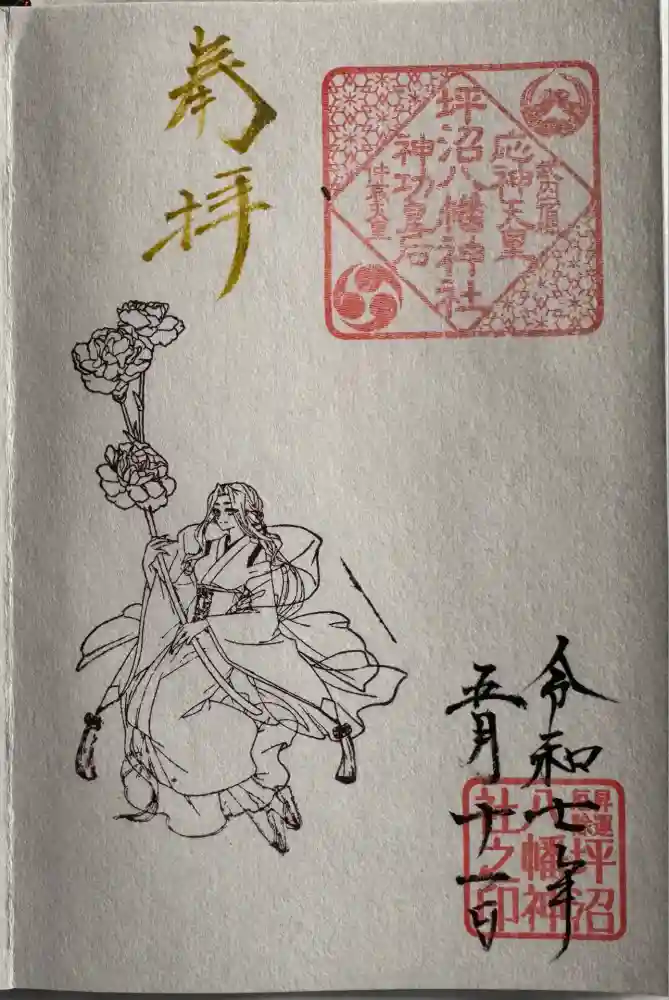 奉拝
応神天皇
坪沼八幡神社
神功皇后
仲哀天皇
令和七年
五月十一日
昇運
坪沼
八幡神
社之印